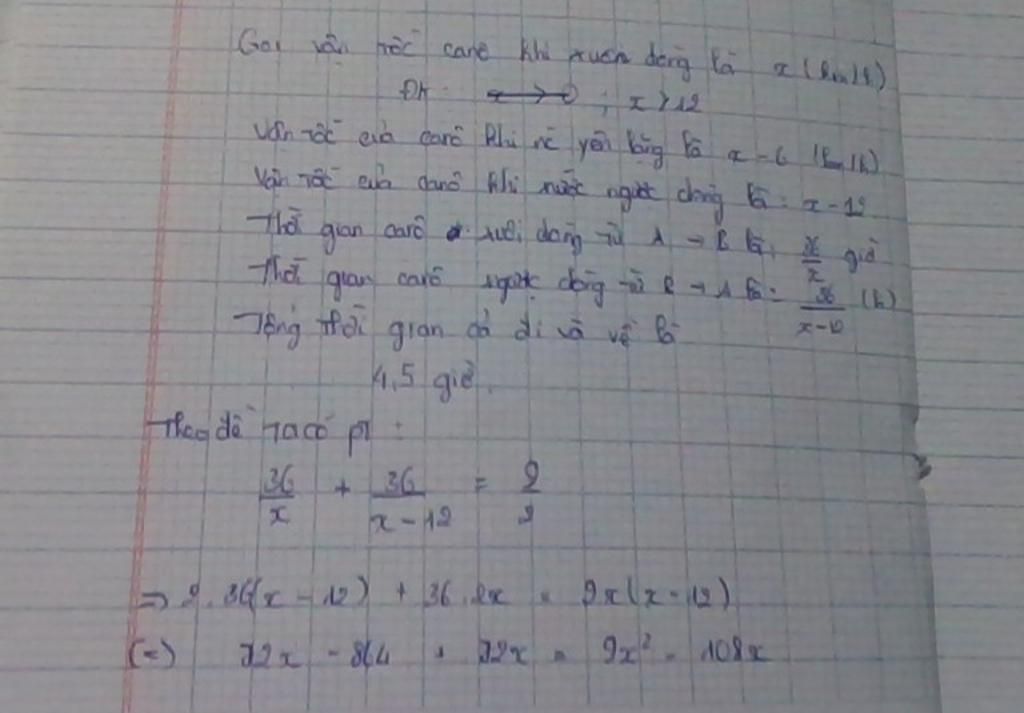 Gọi vận tốc canô khi xuôi dòng là x (km/h)
ĐK: x > 12
Vận tốc của canô khi nc yên lặng là x - 6 (km/h)
Vận tốc của canô khi nước ngược dòng là: x - 12
Thời gian canô xuôi dòng từ A → B là: 36/x giờ
Thời gian canô ngược dòng từ B → A là: 36/(x-12) (h)
Tổng thời gian cả đi và về là
4,5 giờ.
Theo đề ta có pt:
36/x + 36/(x - 12) = 9/2
=> 2.36(x - 12) + 36.2x = 9x(x - 12)
(=) 72x - 864 + 72x = 9x² - 108x